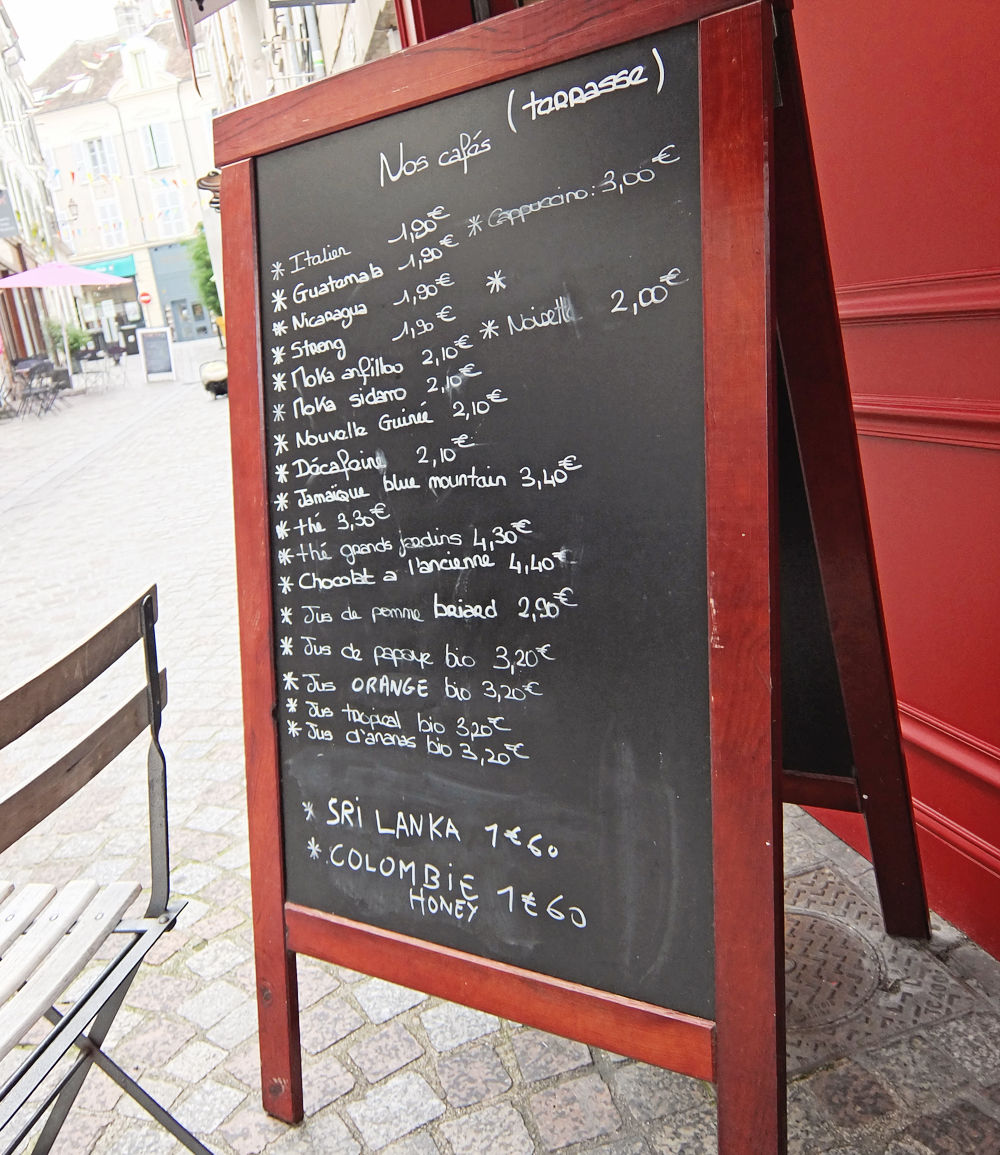 (terrasse)
Nos cafés
* Italien 1,90€
* Cappuccino: 3,00€
* Guatemala 1,90€
* Nicaragua 1,90€
*
* Strong 1,90€
* Noisette 2,00€
* Moka anfilloo 2,10€
* Moka sidamo 2,10€
* Nouvelle Guinée 2,10€
* Décafeine 2,10€
* Jamaïque blue mountain 3,40€
* thé 3,30€
* thé grands jardins 4,30€
* Chocolat a l'ancienne 4,40€
* Jus de pomme briard 2,90€
* Jus de papaye bio 3,20€
* Jus ORANGE bio 3,20€
* Jus tropical bio 3,20€
* Jus d'ananas bio 3,20€
* SRI LANKA 1€60
* COLOMBIE
HONEY 1€60